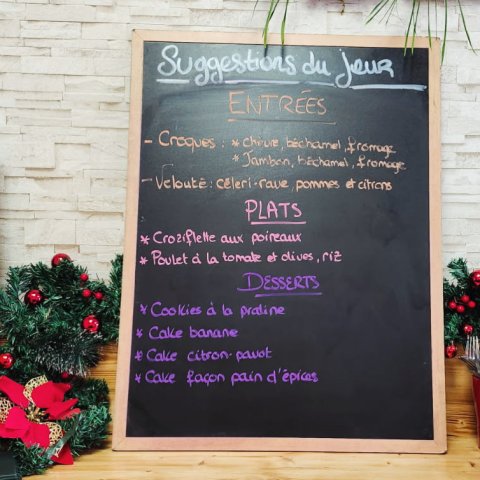 Suggestions du jour
ENTRÉES
- Croques : * chèvre, béchamel, fromage
* Jambon, béchamel, fromage
- Velouté : céleri-rave, pommes et citrons
PLATS
* Croziflette aux poireaux
* Poulet à la tomate et olives, riz
DESSERTS
* Cookies à la praline
* Cake banane
* Cake citron-pavot
* Cake façon pain d'épices